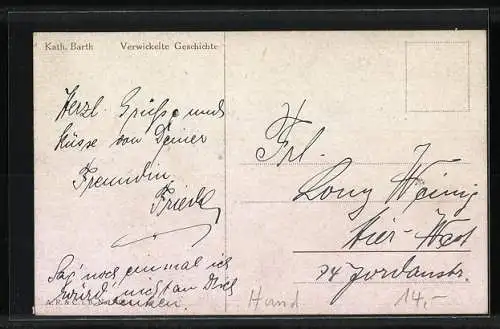 Kath. Barth Verwickelte Geschichte
Herzl. Grüsse und
Küsse von Deiner
Freundin
Friedl
Sag' noch einmal ich
würd' nicht an Dich
denken.
A.R.& C.i.B.
Frl.
Lony Weinig
Hier-West
74 Jordanstr.
Hund
14,-